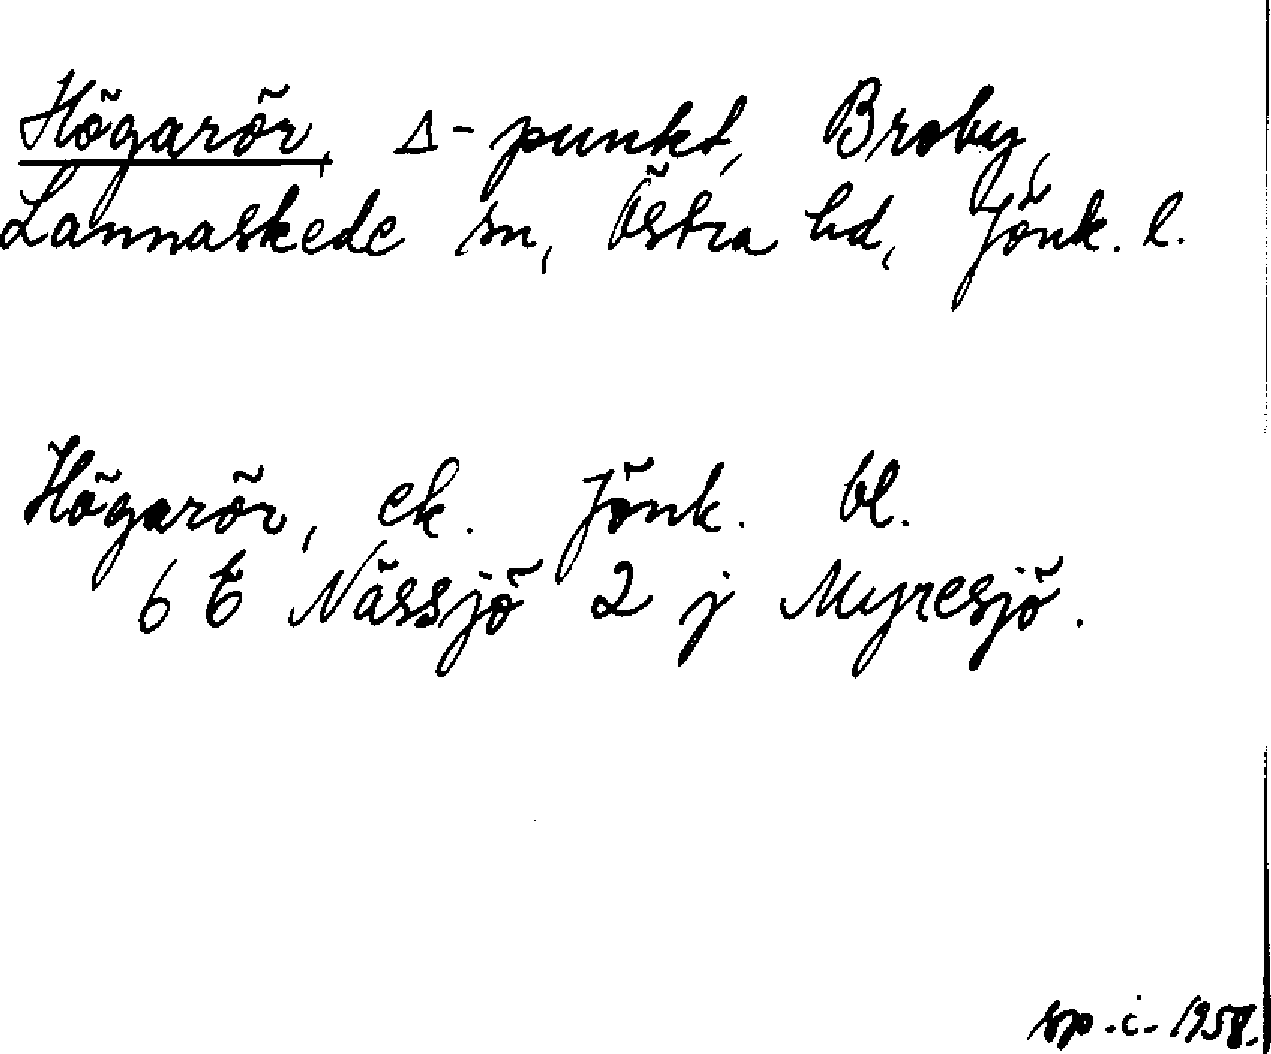 Högarör, Δ-punkt, Broby,
Lannaskede sn, Östra hd, Jönk. l.
Högarör, ek. Jönk. bl.
6 E Nässjö 2 j Myresjö.
sp.i. 1958.